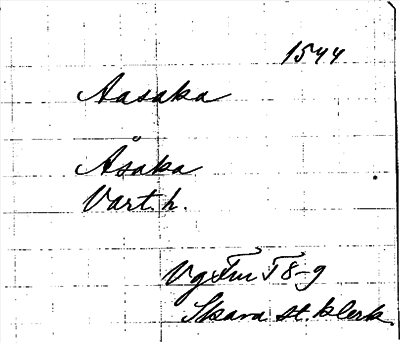 1544
Aasaka
Åsaka
Vart. h.
Vg Fnr T 8-9
Skara st. klerk.